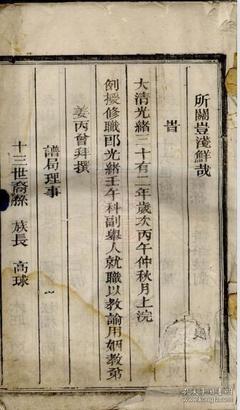 所關豈淺鮮哉
旹
大清光緒三十有二年歲次丙午仲秋月上浣
例授修職郎光緒壬午科副舉人就職以教諭用姻教弟
姜丙曾拜撰
譜局理事
十三世裔孫 族長 高球